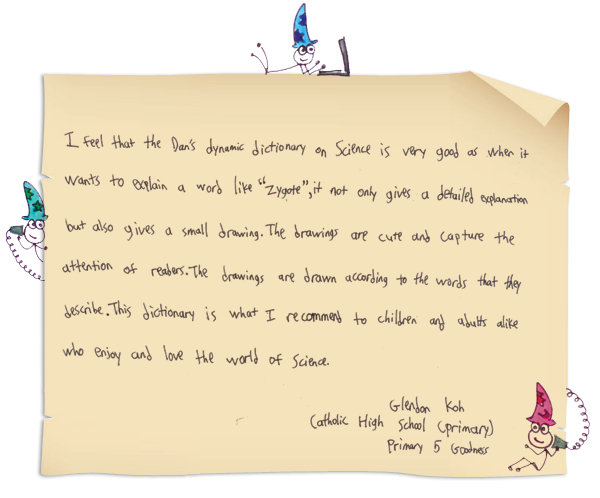 I feel that the Dan's dynamic dictionary on Science is very good as when it
wants to explain a word like "Zygote", it not only gives a detailed explanation
but also gives a small drawing. The drawings are cute and capture the
attention of readers. The drawings are drawn according to the words that they
describe. This dictionary is what I recommend to children and adults alike
who enjoy and love the world of Science.
Glendon Koh
Catholic High School (primary)
Primary 5 Goodness